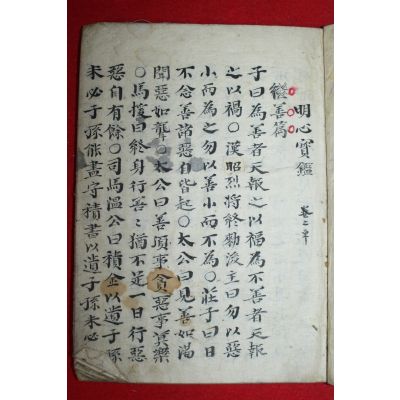 明心寶鑑 卷之單
繼善篇
子曰為善者天報之以福為不善者天報
之以禍○漢昭烈將終勅後主曰勿以惡
小而為之勿以善小而不為○莊子曰日
不念善諸惡自皆起○太公曰見善如渴
聞惡如聾○太公曰善須事貪惡事莫樂
○馬援曰終身行善〻猶不足一日行惡
惡自有餘○司馬溫公曰積金以遺子孫
未必子孫能盡守積書以遺子孫未必